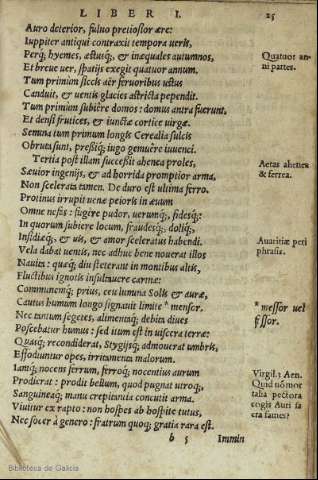 LIBER I. 25
Auro deterior, fuluo pretiosior ære:
Iuppiter antiqui contraxit tempora ueris,
Perq; hyemes, æstusq;, & inæquales autumnos,
Et breue uer, spatijs exegit quatuor annum.
Quatuor an-
ni partes.
Tum primùm siccis aër feruoribus ustus
Canduit, & uentis glacies astricta pependit.
Tum primùm subiêre domos: domus antra fuerunt,
Et densi frutices, & iunctæ cortice uirgæ.
Semina tum primum longis Cerealia sulcis
Obruta sunt, pressiq; iugo gemuêre iuuenci.
Tertia post illam successit ahenea proles,
Sæuior ingenijs, & ad horrida promptior arma,
Non scelerata tamen. De duro est ultima ferro.
Aetas ahenea
& ferrea.
Protinus irrupit uenæ peioris in æuum
Omne nefas: fugêre pudor, uerumq;, fidesq;:
In quorum subiere locum, fraudesq;, doliq;,
Insidiæq;, & uis, & amor sceleratus habendi.
Auaritiæ peri
phrasis.
Vela dabat uentis, nec adhuc bene nouerat illos
Nauita: quæq; diu steterant in montibus altis,
Fluctibus ignotis insultauere carinæ:
Communemq; prius, ceu lumina Solis & auræ,
Cautus humum longo signauit limite * mensor.
* messor uel
fossor.
Nec tantum segetes, alimentaq; debita diues
Poscebatur humus: sed itum est in uiscera terræ:
Quasq; recondiderat, Stygijsq; admouerat umbris,
Effodiuntur opes, irritamenta malorum.
Iamq; nocens ferrum, ferroq; nocentius aurum
Prodierat: prodit bellum, quod pugnat utroq;,
Sanguineaq; manu crepitantia concutit arma.
Virgil. 3 Aen.
Quid nō mor
talia pectora
cogis Auri sa
cra fames?
Viuitur ex rapto: non hospes ab hospite tutus,
Nec socer à genero: fratrum quoq; gratia rara est.
b 5 Immin
Biblioteca de Galicia